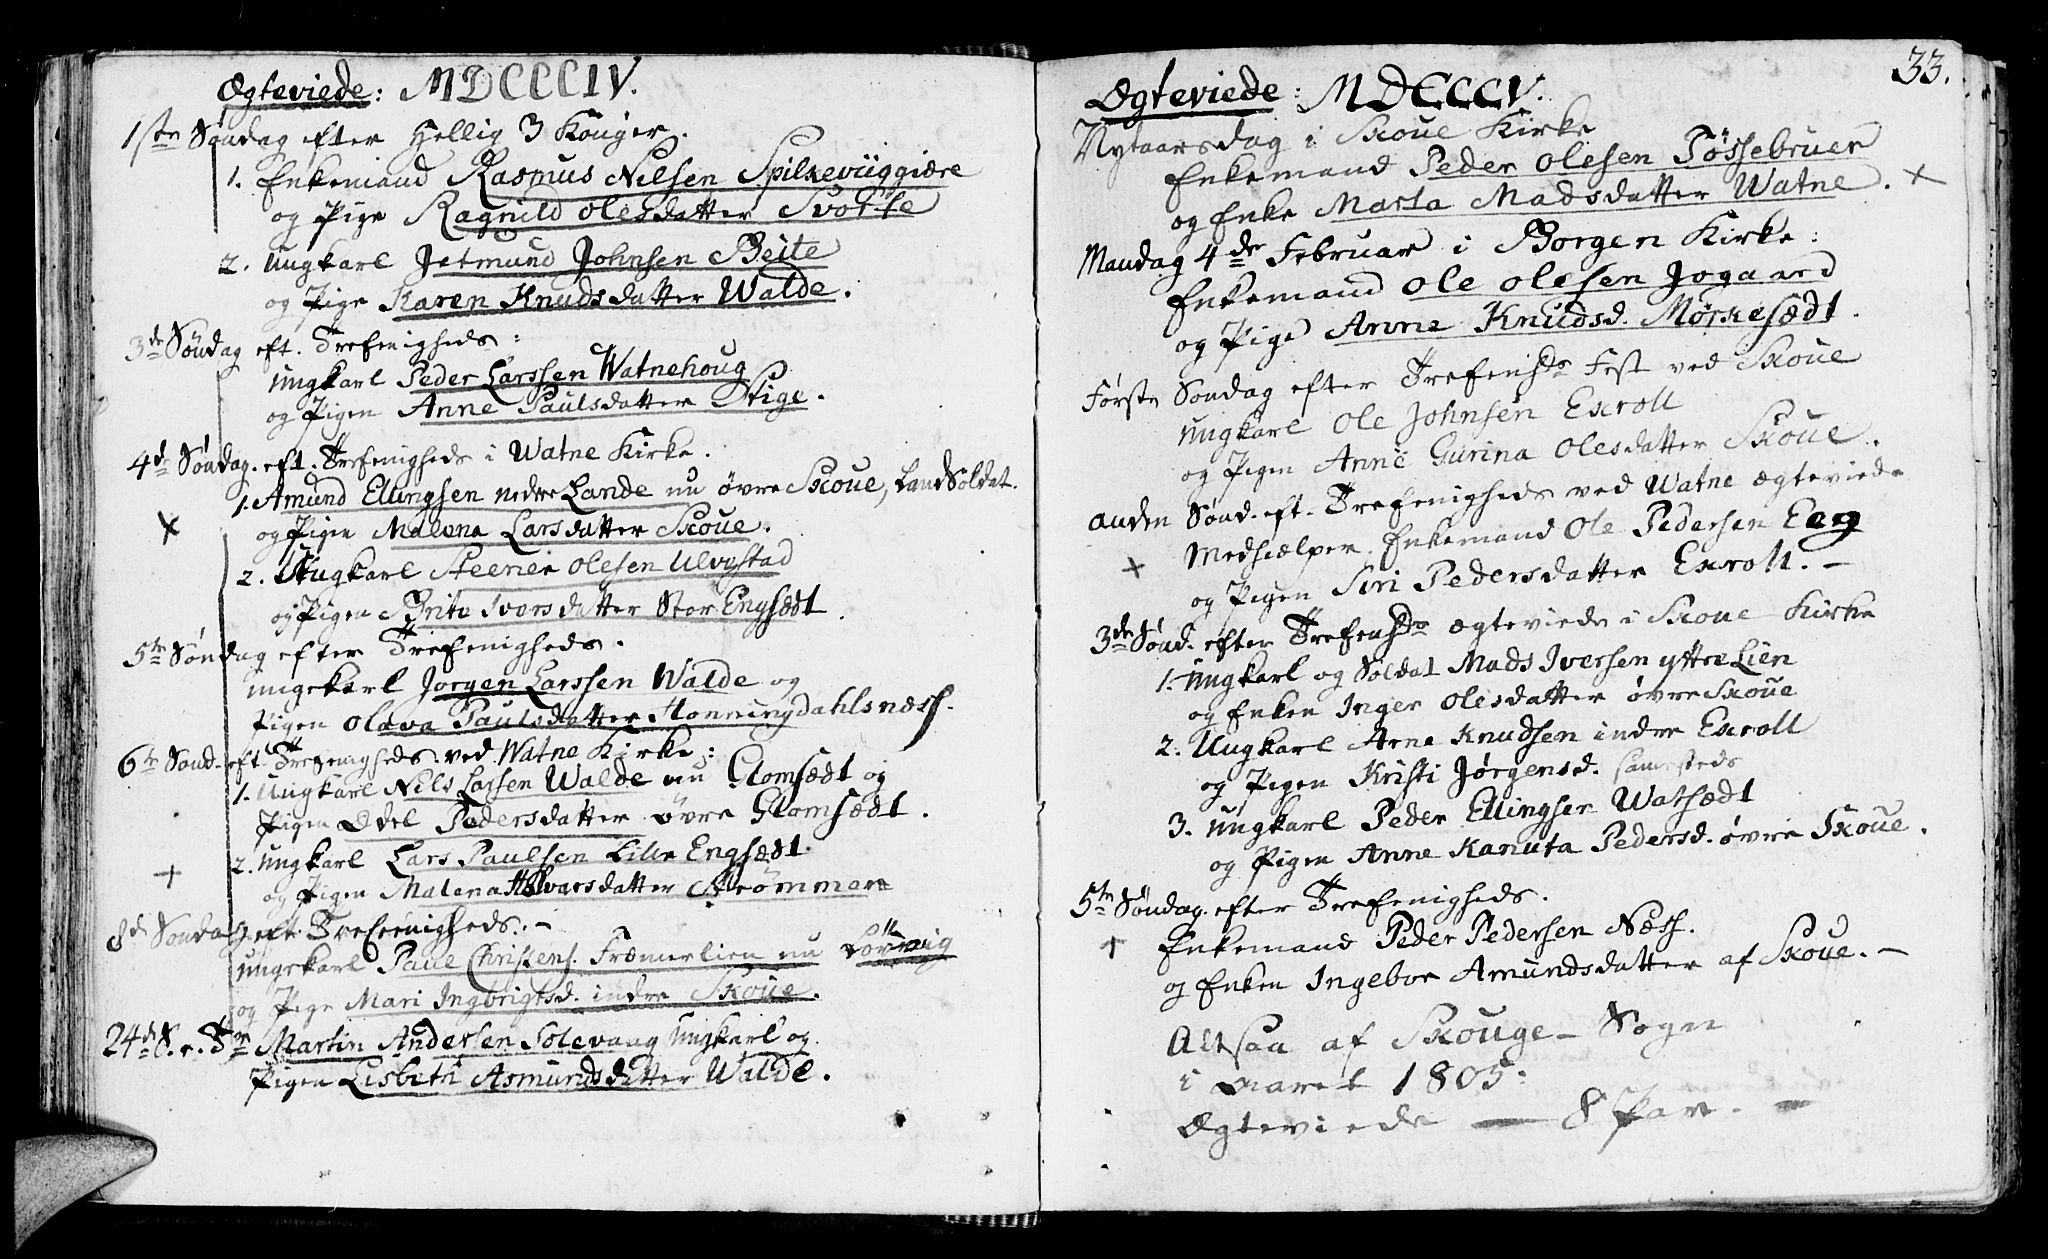 Ægteviede: MDCCCIV.
1ste Søndag efter Hellig 3 Konger.
1. Enkemand Rasmus Nilsen Spilkeviiggiære
og Pige Ragnild Olesdatter Svorte
2. Ungkarl Jetmund Johnsen Beite
og Pige Karen Knudsdatter Walde.
3de Søndag eft. Trefenigheds:
Ungkarl Peder Larssen Watnehoug
og Pigen Anne Paulsdatter Stige.
4de Søndag. eft. Trefenigheds i Watne Kirke.
1. Amund Ellingsen nedre Lande nu øvre Skoue, Land Soldat.
og Pigen Malena Larsdatter Skoue.
2. Ungkarl Steener Olesen Ulvestad
og Pigen Brite Iversdatter Stor Engsædt.
5te Søndag efter Trefenigheds.
ungekarl Jørgen Larssen Walde og
Pigen Olava Paulsdatter Honningdahlsnæss.
6te Sønd. eft. Trefenigheds ved Watne Kirke:
1. Ungkarl Nils Larsen Walde nu Glomsædt og
Pigen Edel Pedersdatter øvre Glomsædt.
2. Ungkarl Lars Paulsen Lille Engsædt.
og Pigen Malena Halvarsdatter Strømmen
8de Søndag eft. Trefenigheds. -
Ungekarl Paul Christens. Fræmerlien nu
og Pige Mari Ingbrigtsd. indre Skoue.
24de S. e. Tr. Martin Andersen Solevaag Ungkarl og
Pigen Lisbeth Asmundsdatter Walde.
33.
Ægteviede: MDCCCV.
Nytaarsdag i Skoue Kirke
Enkemand Peder Olesen Tøssebruen
og Enke Marta Madsdatter Watne.
Mandag 4de Februar i Borgen Kirke:
Enkemand Ole Olesen Jogaard
og Pige Anne Knudsd. Mørkesædt.
Første Søndag efter Trefenhds Fest ved Skoue
Ungkarl Ole Johnsen Exroll
og Pigen Anne Gurina Olesdatter Skoue.
anden Sønd. eft. Trefenigheds ved Watne ægteviede
Medhielper Enkemand Ole Pedersen Eeg
og Pigen Siri Pedersdatter Exroll. -
3de Sønd. efter Trefenhds ægteviede i Skoue Kirke
1. Ungkarl og Soldat Mads Iversen yttre Lien
og Enken Inger Olesdatter øvre Skoue
2. Ungkarl Arne Knudsen indre Exroll
og Pigen Kristi Jørgensd. samesteds
3. Ungkarl Peder Ellingsen Watsædt
og Pigen Anne Kanuta Pedersd. øvre Skoue.
5te Søndag efter Trefenigheds.
Enkemand Peder Pedersen Næss.
og Enken Ingebor Amundsdatter af Skoue. -
Altsaa af Skouge - Sogn
i aaret 1805:
Ægteviede — 8 Par. -